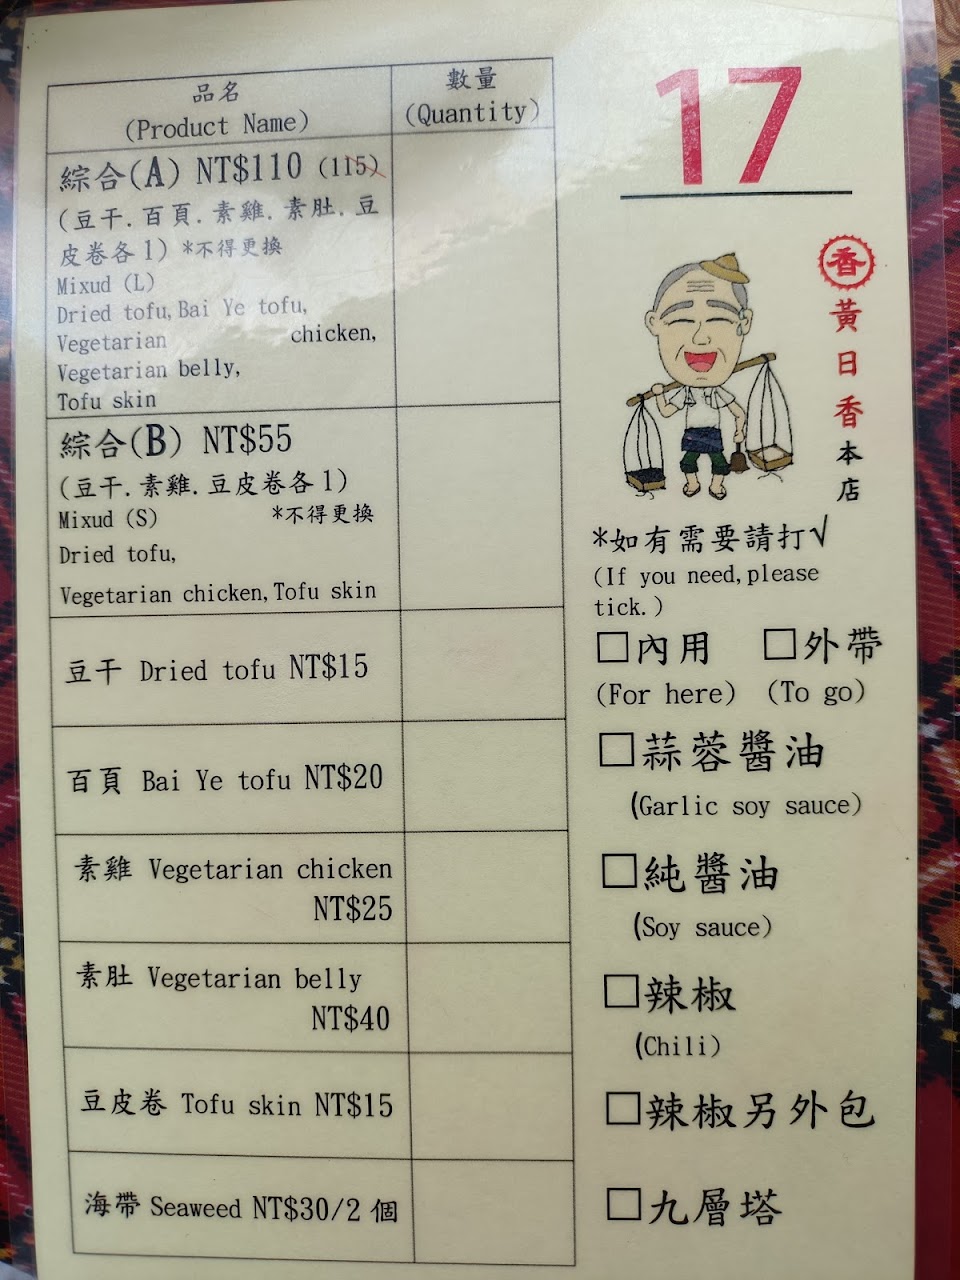 品名
(Product Name)
數量
(Quantity)
綜合(A) NT$110 (115)
(豆干.百頁.素雞.素肚.豆
皮卷各1) *不得更換
Mixud (L)
Dried tofu,Bai Ye tofu,
Vegetarian chicken,
Vegetarian belly,
Tofu skin
綜合(B) NT$55
(豆干.素雞.豆皮卷各1)
Mixud (S) *不得更換
Dried tofu,
Vegetarian chicken,Tofu skin
豆干 Dried tofu NT$15
百頁 Bai Ye tofu NT$20
素雞 Vegetarian chicken
NT$25
素肚 Vegetarian belly
NT$40
豆皮卷 Tofu skin NT$15
海帶 Seaweed NT$30/2 個
17
香
黃日香本店
*如有需要請打√
(If you need,please
tick.)
□內用 □外帶
(For here) (To go)
□蒜蓉醬油
(Garlic soy sauce)
□純醬油
(Soy sauce)
□辣椒
(Chili)
□辣椒另外包
□九層塔